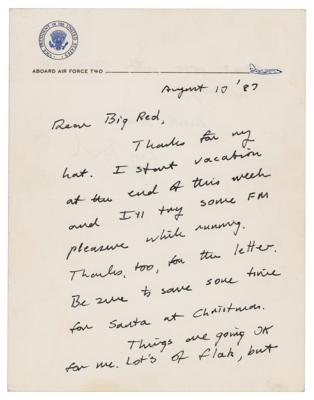 VICE PRESIDENT OF THE UNITED STATES
ABOARD AIR FORCE TWO
August 10 '87
Dear Big Red,
Thanks for my
hat. I start vacation
at the end of this week
and I'll try some FM
pleasure while running.
Thanks, too, for the letter.
Be sure to save some time
for Santa at Christmas.
Things are going OK
for me. Lot's of flak, but